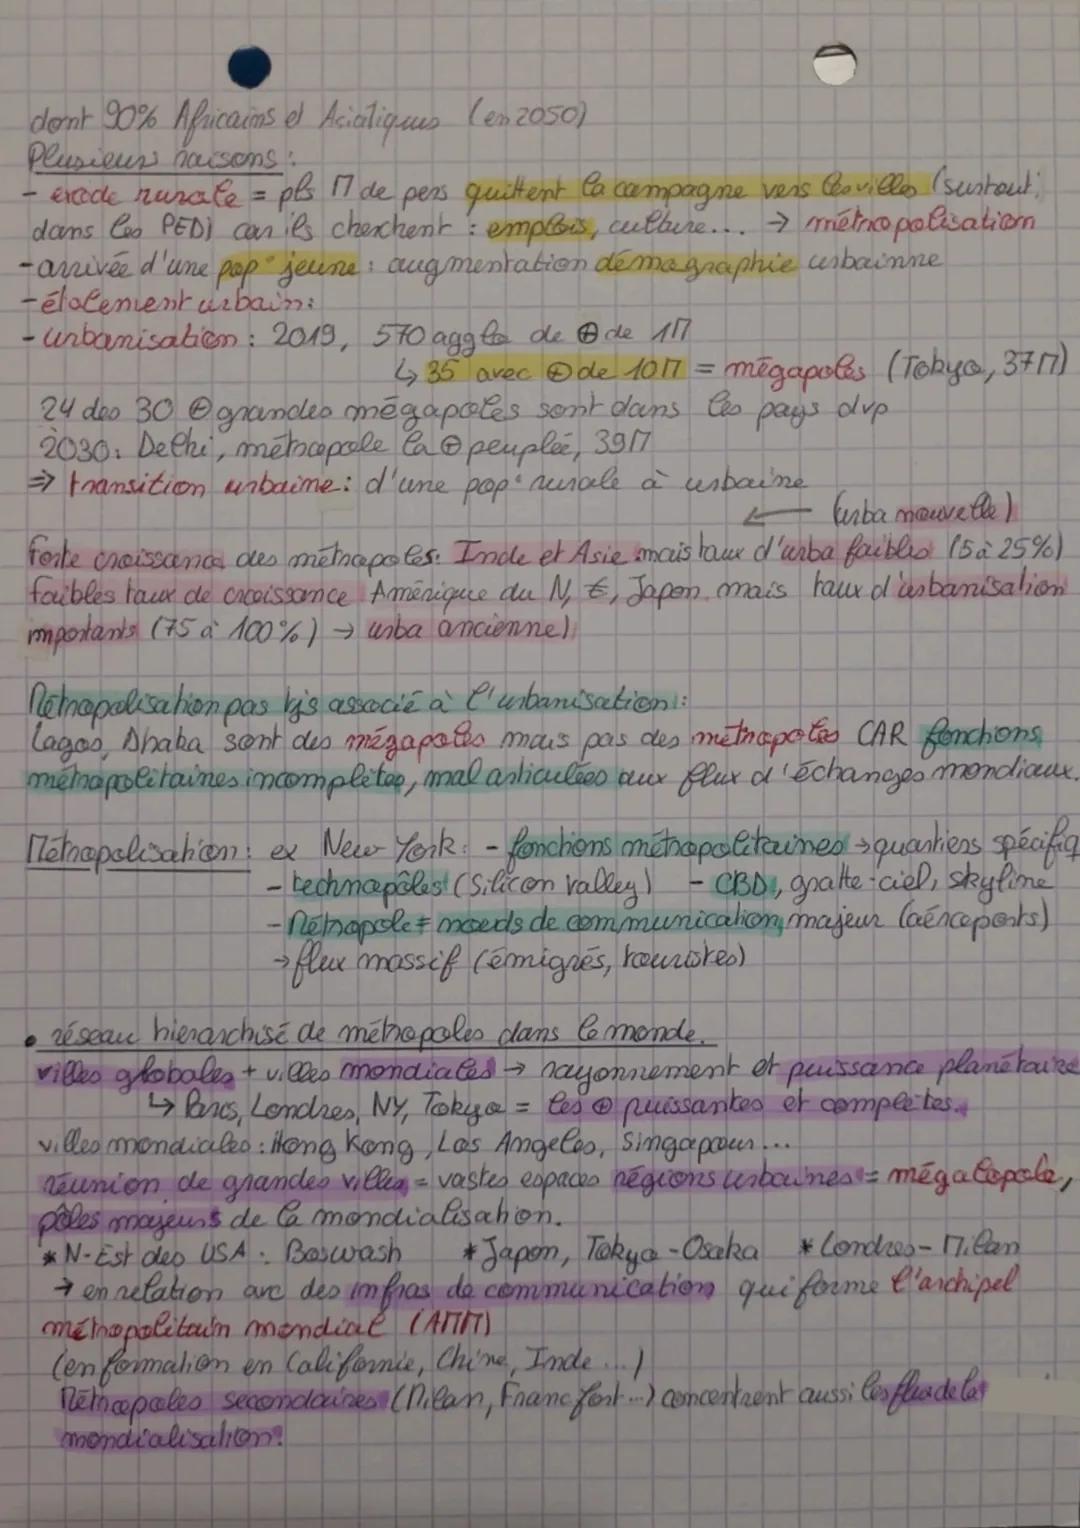 dont 90% Africains et Asiatiques (en 2050)
Plusieurs raisons :
- exode rurale = pls M de pers quittent la campagne vers les villes (surtout
dans les PED) car ils cherchent : emplois, culture... → métropolisation
- arrivée d'une pop° jeune : augmentation démographie urbainne
- étalement urbain :
- urbanisation : 2019, 570 agglo de ⊕ de 1M
↳ 35 avec ⊕ de 10M = mégapoles (Tokyo, 37M)
24 des 30 ⊕ grandes mégapoles sont dans les pays dvp
2030 : Delhi, métropole la ⊕ peuplée, 39M
⇒ transition urbaine : d'une pop° rurale à urbaine
← (urba nouvelle)
forte croissance des métropoles : Inde et Asie mais taux d'urba faibles (5 à 25%)
faibles taux de croissance Amérique du N, €, Japon mais taux d'urbanisation
importants (75 à 100%) → urba ancienne)
Métropolisation pas tjs associé à l'urbanisation :
Lagos, Dhaka sont des mégapoles mais pas des métropoles CAR fonctions
métropolitaines incomplètes, mal articulées aux flux d'échanges mondiaux.
Métropolisation : ex New York : - fonctions métropolitaines → quartiers spécifiq
- technopôles (Silicon valley) - CBD, gratte-ciel, skyline
- Métropole = noeuds de communication majeur (aéroports)
→ flux massif (émigrés, touristes)
• réseau hierarchisé de métropoles dans le monde.
villes globales + villes mondiales → rayonnement et puissance planétaire
↳ Paris, Londres, NY, Tokyo = les ⊕ puissantes et complètes.
villes mondiales : Hong Kong, Los Angeles, Singapour...
réunion de grandes villes = vastes espaces régions urbaines = mégalopole,
pôles majeurs de la mondialisation.
* N-Est des USA : Boswash * Japon, Tokyo-Osaka * Londres-Milan
→ en relation avc des infras de communication qui forme l'archipel
métropolitain mondial (AMM)
(en formation en Californie, Chine, Inde ...)
Métropoles secondaires (Milan, Francfort...) concentrent aussi les flux de la
mondialisation.